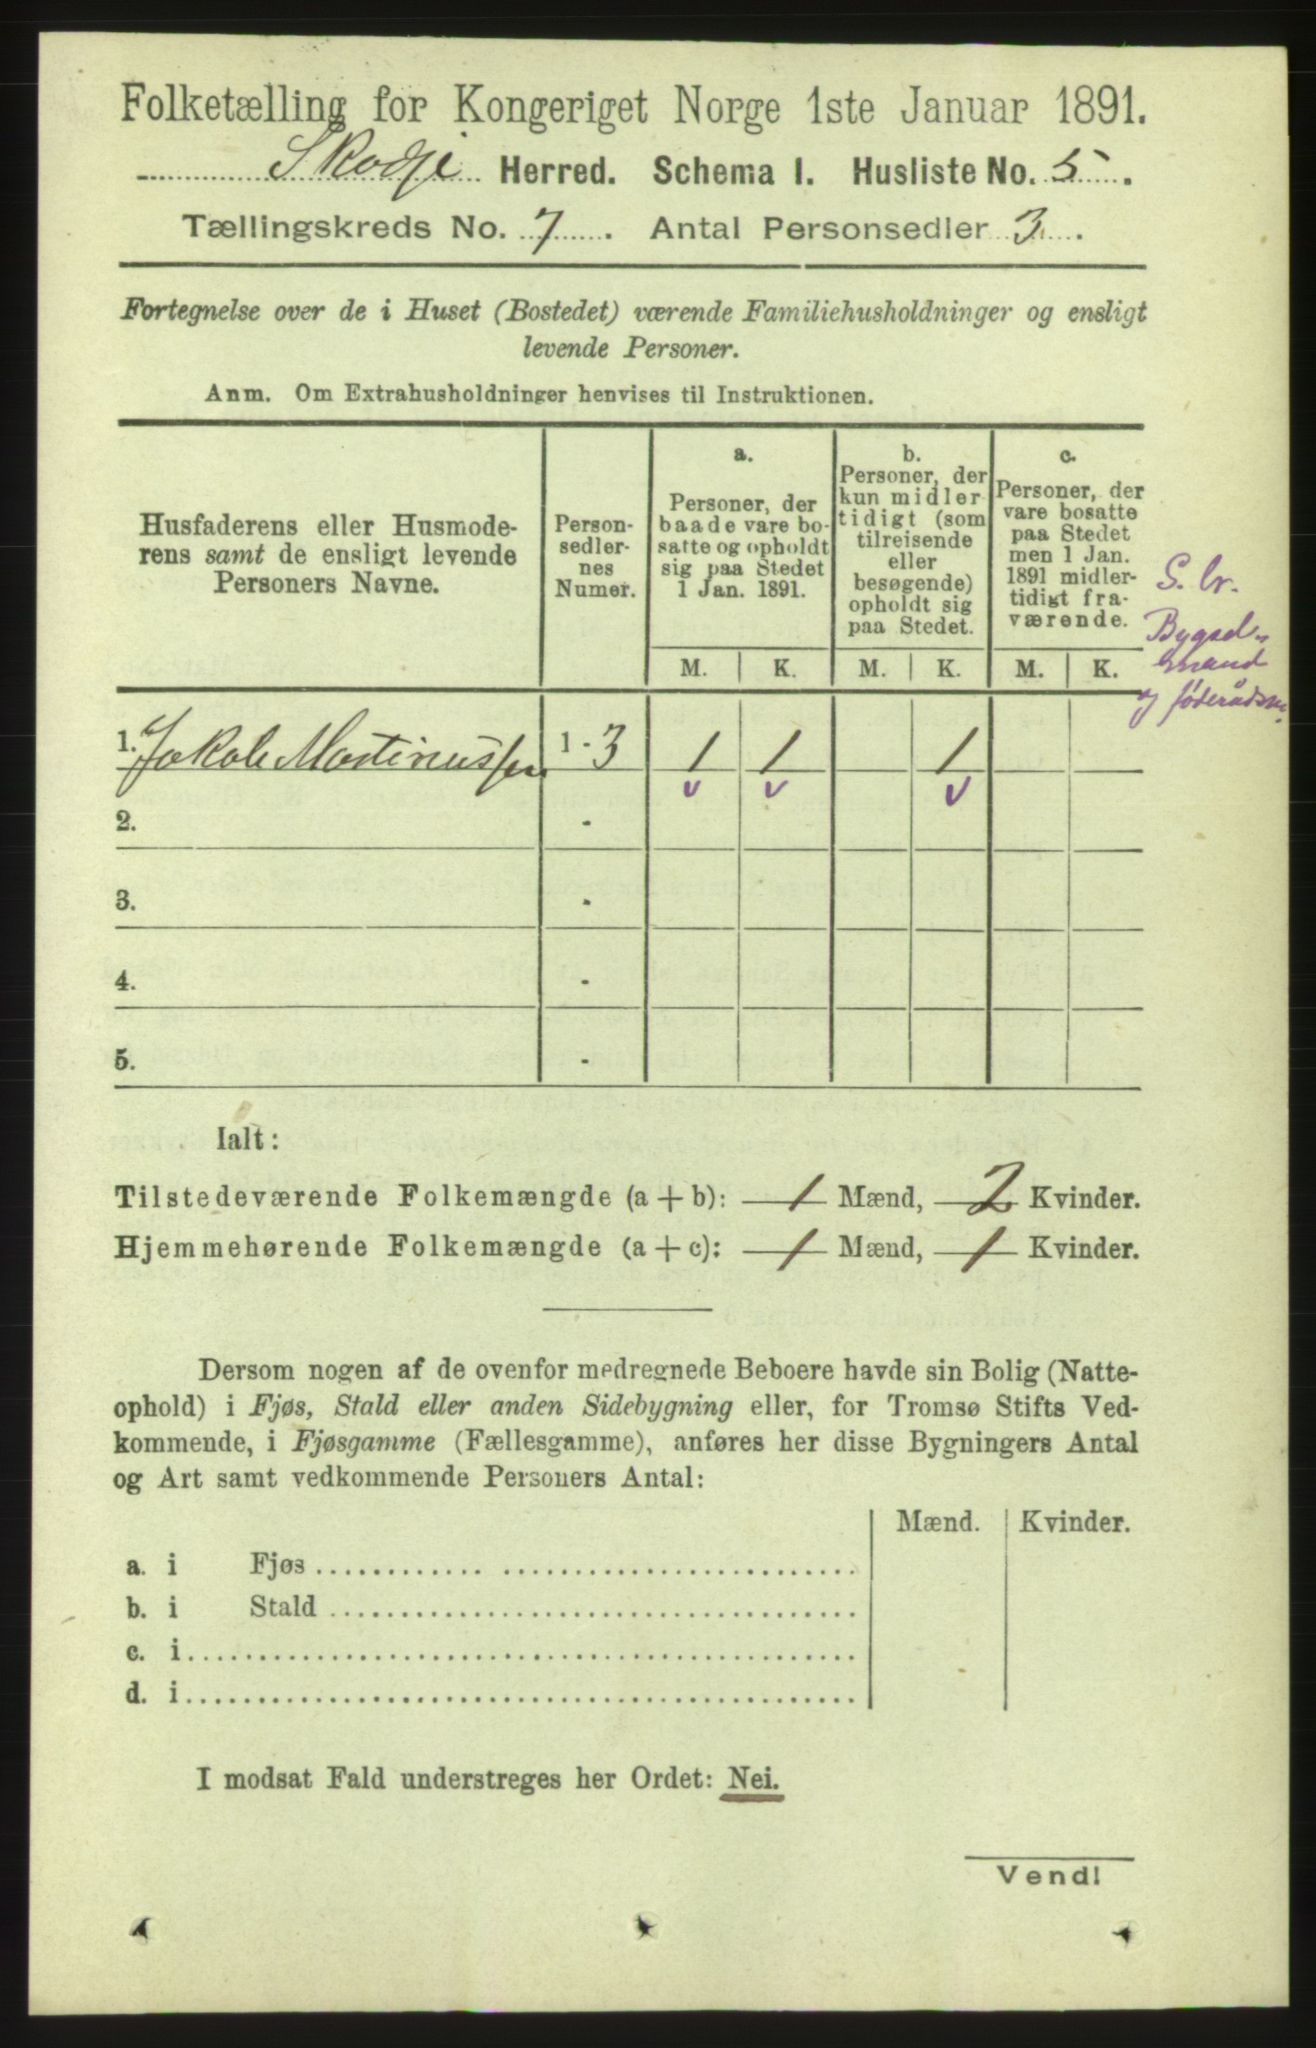 Folketælling for Kongeriget Norge 1ste Januar 1891.
Skodje Herred. Schema I. Husliste No. 5.
Tællingskreds No. 7. Antal Personsedler 3.
Fortegnelse over de i Huset (Bostedet) værende Familiehusholdninger og ensligt
levende Personer.
Anm. Om Extrahusholdninger henvises til Instruktionen.
Husfaderens eller Husmode-
rens samt de ensligt levende
Personers Navne.
Person-
sedler-
nes
Numer.
a.
Personer, der
baade vare bo-
satte og opholdt
sig paa Stedet
1 Jan. 1891.
b.
Personer, der
kun midler-
tidigt (som
tilreisende
eller
besøgende)
opholdt sig
paa Stedet.
c.
Personer, der
vare bosatte
paa Stedet
men 1 Jan.
1891 midler-
tidigt fra-
værende.
S. br.
Bygsel-
mand
og føderådsm.
M. K. M. K. M. K.
1. Jakob Martinussen 1 - 3 1 1 1
v v v
2. -
3. -
4. -
5. -
Ialt:
Tilstedeværende Folkemængde (a + b): 1 Mænd, 2 Kvinder.
Hjemmehørende Folkemængde (a + c): 1 Mænd, 1 Kvinder.
Dersom nogen af de ovenfor medregnede Beboere havde sin Bolig (Natte-
ophold) i Fjøs, Stald eller anden Sidebygning eller, for Tromsø Stifts Ved-
kommende, i Fjøsgamme (Fællesgamme), anføres her disse Bygningers Antal
og Art samt vedkommende Personers Antal:
Mænd. Kvinder.
a. i Fjøs
b. i Stald
c. i
d. i
I modsat Fald understreges her Ordet: Nei.
Vend!